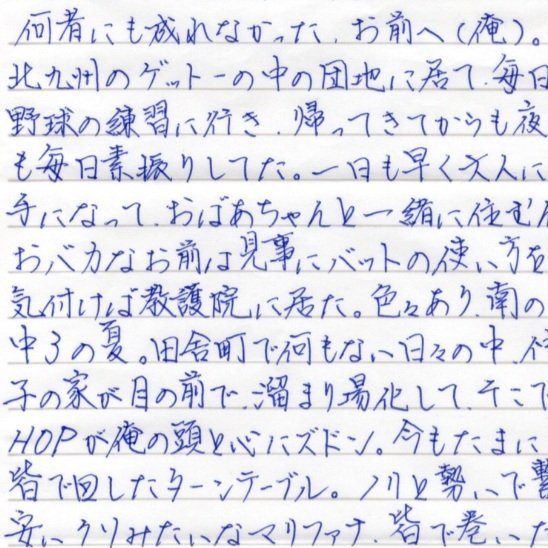 何者にも成れなかった、お前へ(俺)。
北九州のゲットーの中の団地に居て、毎日
野球の練習に行き、帰ってきてからも夜
も毎日素振りしてた。一日も早く大人に
手になって、おばあちゃんと一緒に住む
おバカなお前は見事にバットの使い方を
気付けば教護院に居た。色々あり、南の
中3の夏。田舎町で何もない日々の中、
子の家が目の前で、溜まり場化して、そこで
HOPが俺の頭と心にズドン。今もたまに
皆で回したターンテーブル。ノリと勢いで
安いクリみたいなマリファナ、皆で巻いた